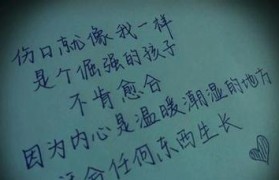 伤口就像我一样
是个倔强的孩子
不肯愈合
因为内心是温暖潮湿的地方
合任何东西生长